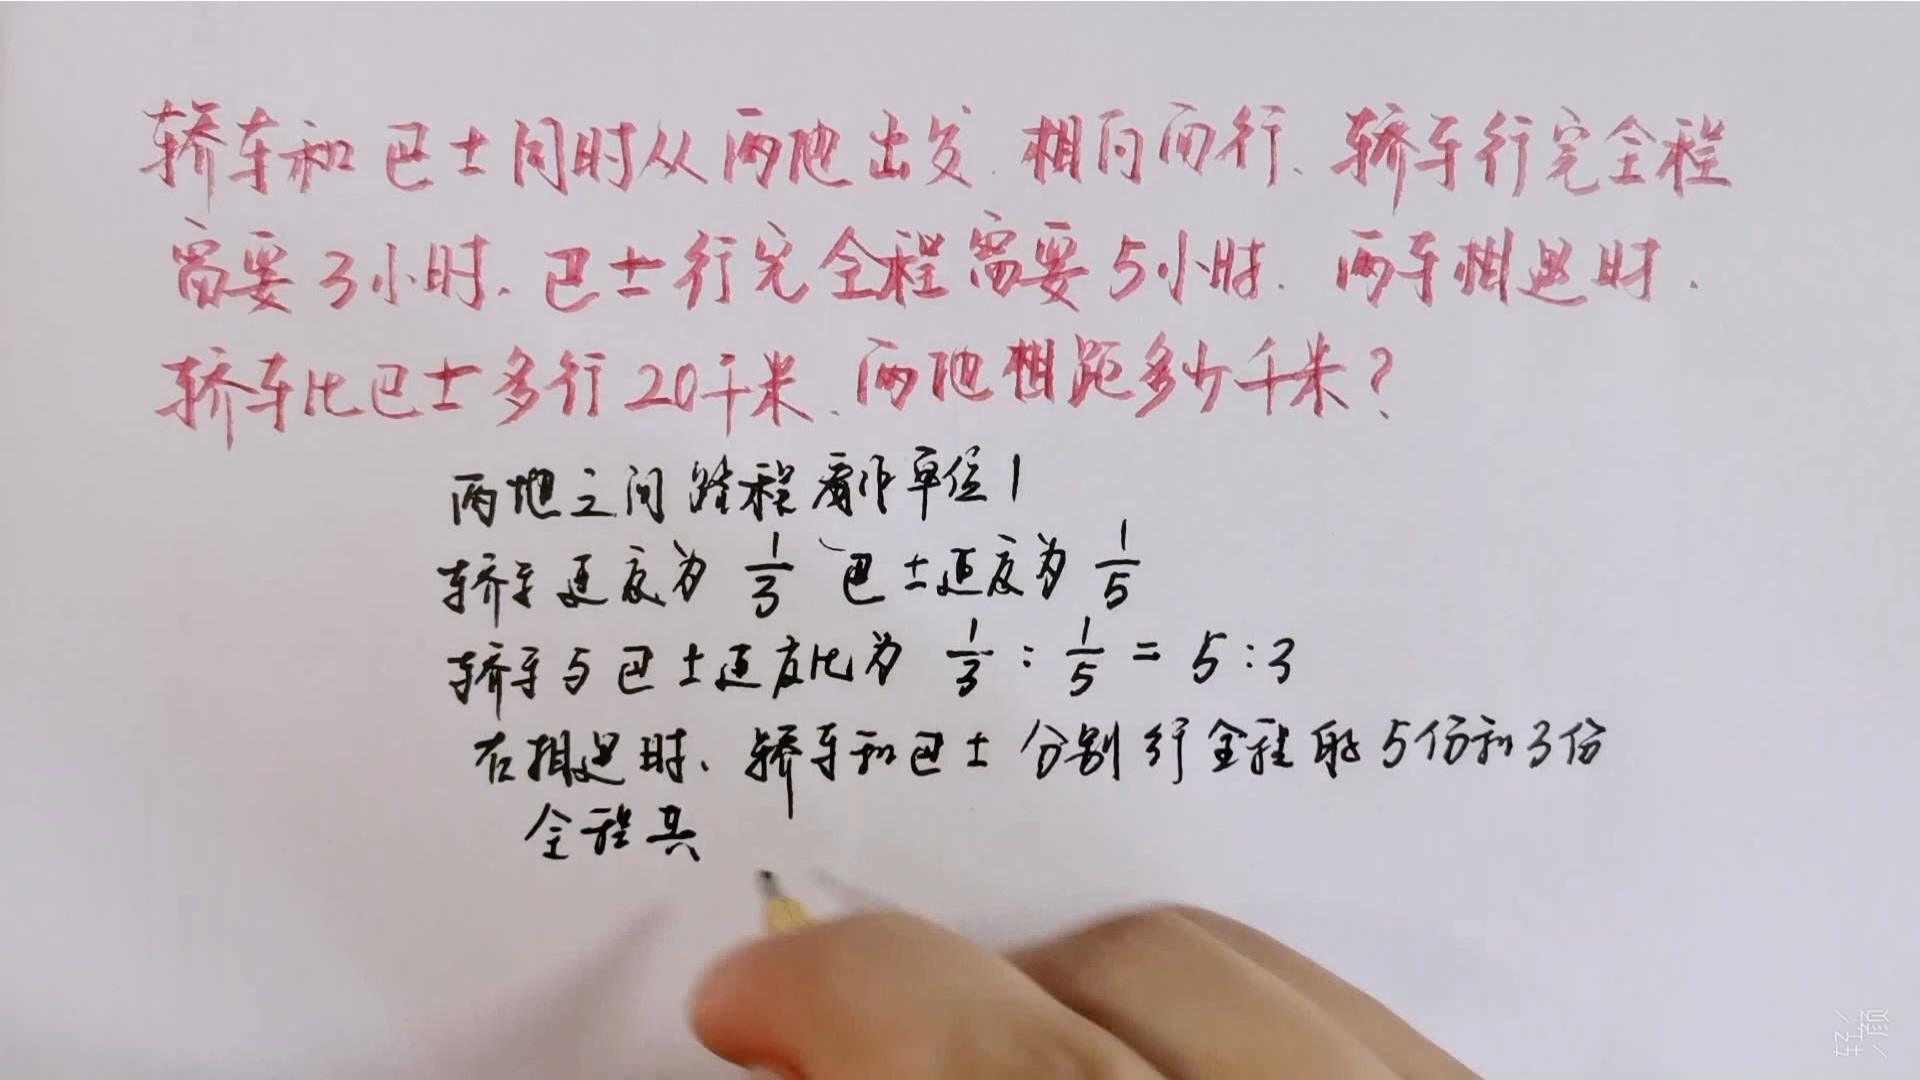 轿车和巴士同时从两地出发.相向而行、轿车行完全程
需要3小时、巴士行完全程需要5小时.两车相遇时.
轿车比巴士多行20千米、两地相距多少千米?
两地之间路程看作单位1
轿车速度为 1/3 巴士速度为 1/5
轿车与巴士速度比为 1/3 : 1/5 = 5:3
在相遇时、轿车和巴士分别行全程的5份和3份
全程共
轻颜